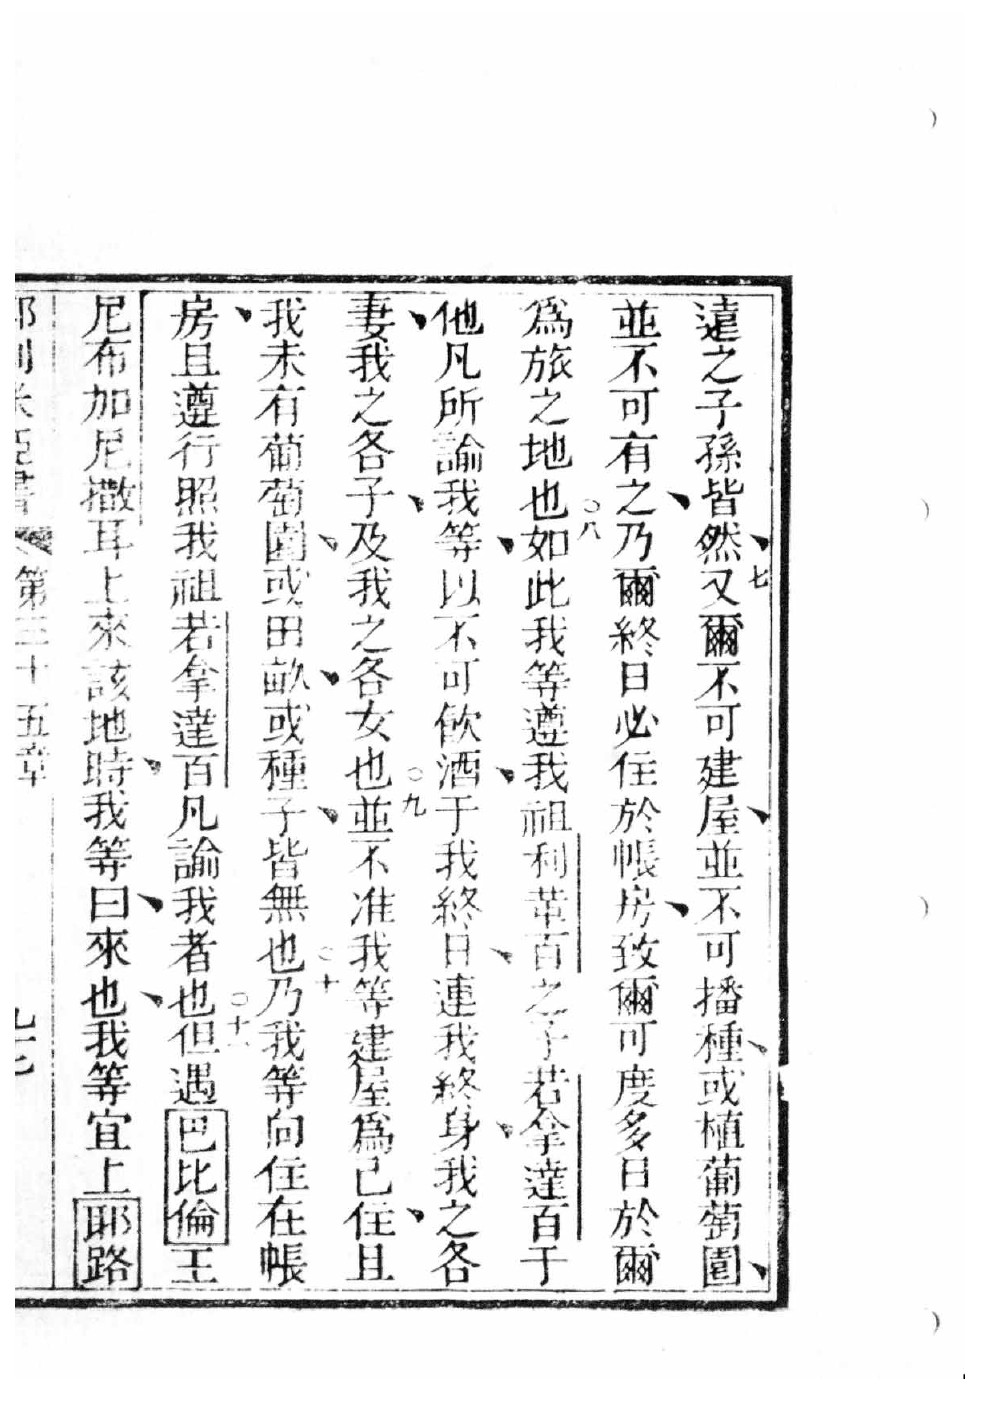 遠之子孫皆然七又爾不可建屋並不可播種或植葡萄園
並不可有之乃爾終日必住於帳房致爾可度多日於爾
為旅之地也○八如此我等遵我祖利革百之子若拿達百于
他凡所諭我等以不可飲酒于我終日連我終身我之各
妻我之各子及我之各女也○九並不准我等建屋為己住且
我未有葡萄園或田畝或種子皆無也○十乃我等向住在帳
房且遵行照我祖若拿達百凡諭我者也○十一但遇巴比倫王
尼布加尼撒耳上來該地時我等曰來也我等宜上耶路
耶利米亞書 第三十五章